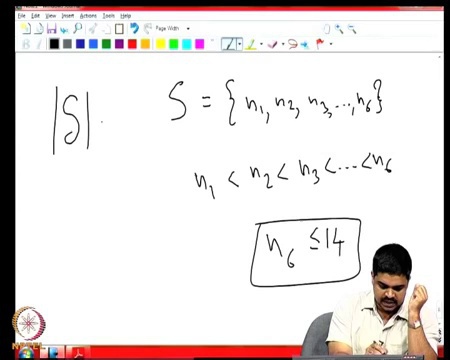 File Edit View Insert Actions Tools Help
Page Width
|S|. S = {n₁, n₂, n₃, ..., n₆}
n₁ < n₂ < n₃ < ... < n₆
n₆ ≤ 14